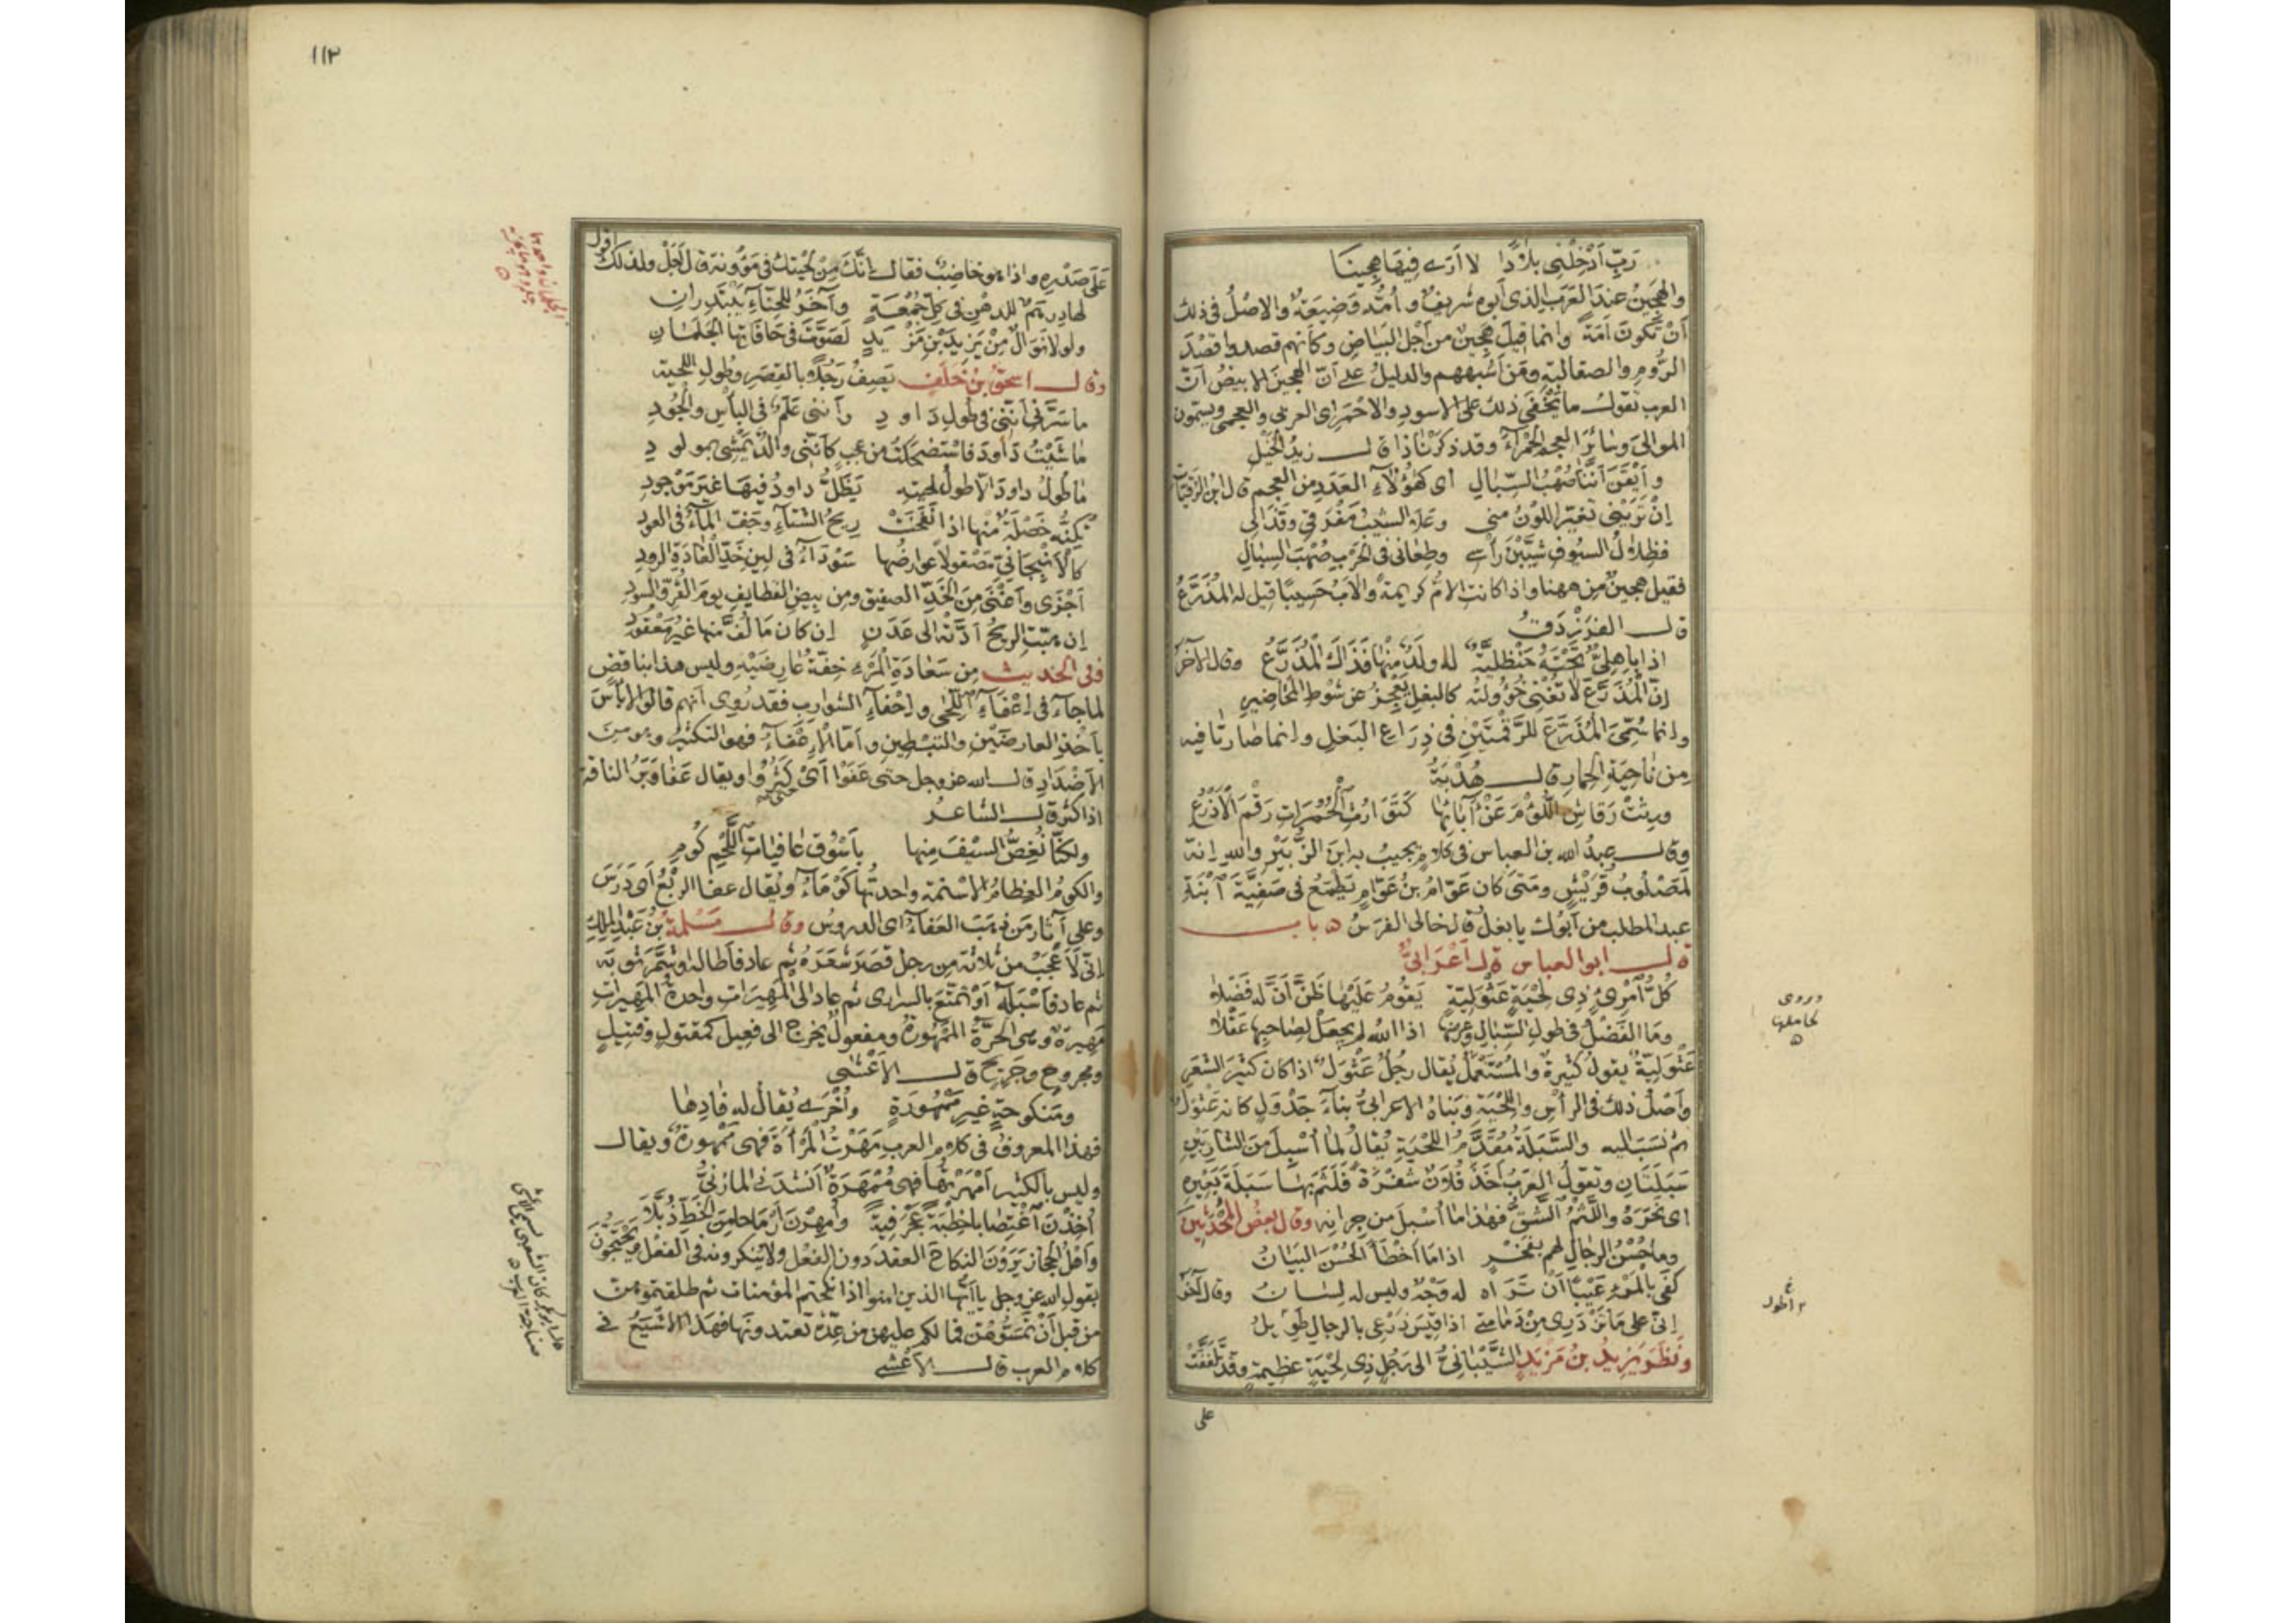 رَبِّ اَدْخِلْنِى بلادًا لا اَرَى فِيهَا هِجِينَا
والهَجِينُ عند العَرَب الذى اَبوه شريفٌ و اُمّه وَضِيعَةٌ والاصْلُ فى ذلك
اَنْ تكونَ اَمَةً وانما قيلَ هَجِينٌ من اَجْل البَيَاضِ وكاَنهم قصدوا قصْدَ
الرُّومِ والصقالبةِ ومَن اَشبههم والدليلُ على اَنّ الهجينَ الابيضُ اَنّ
العرب تقولُ ما يَخْفَى ذلك على الاسودِ والاحْمَرِ اى العربى والعجمى ويسمّون
الموالىَ وسَائرَ العجم الحَمْرَاءَ وقد ذكرنا ذا قال زيدُ الخَيْل
و اَيْقَنَ اَنّنا صُهْبُ السِّبالِ اى كهٰؤلاءِ العَدَدِ من العجم قال ابن الرقيّات
اِنْ تَرَيْنى تغيّرَ اللوْنُ منى وعَلا الشيبُ مَفْرَقى وقَذَالى
فظِلالُ السيُوف شَيَّبْنَ رَأْسِى وطِعَانى فى الحَرْبِ صُهْبَ السِبَالِ
فقيل هجينٌ من ههنا واذا كانت الامُّ كريمةً والابُ خسيسًا قيل له المُذَرَّعُ
قال الفَرَزْدَقُ
اذا باهِلىٌّ تَحْتَهُ حَنْظَلِيَّةٌ له ولَدٌ منْها فَذَاكَ المُذَرَّعُ وقال الآخر
اِنّ المُذَرَّعَ لا تُغْنِى خُؤُولَتُه كالبغلِ يَعْجِزُ عن شَوْطِ المَحَاضِيرِ
وانما سُمِّىَ المُذَرَّعَ للرَّقْمَتَيْنِ فى ذِرَاعِ البَغلِ وانما صَارتَا فيه
مِن نَاحِيَةِ الحِمارِ قال هُدْبَةُ
ورِثَتْ رَقاشِ اللُّؤْمَ عَنْ آبَائِها كَتَوَارُثِ الحُمُرَاتِ رَقْمَ الاَذْرُعِ
وقال عبدُ الله بن العباس فى كلامٍ يجيبُ به ابنَ الزُّبَيْرِ والله اِنه
لَمَصْلُوبُ قُرَيْشٍ ومَتَى كان عَوّامُ بنُ عَوّامٍ يَطْمَعُ فى صَفِيَّةَ ابْنَةِ
عبد المطلب مَن اَبُوك يا بغلُ قال خالى الفرَسُ ه باب
قال ابو العباس قال اَعْرَابىٌّ
كُلُّ امْرِىءٍ ذِى لِحْيَةٍ عَثْوَلِيَّةٍ يَقُومُ عَلَيْهَا ظَنَّ اَنَّ له فَضْلا
ومَا الفَضْلُ فى طُولِ السِّبَالِ وعرضها اذا الله لم يجعَلْ لصاحبها عَقْلا
عَثْوَلِيّةٌ يقولُ كثيرةٌ والمُسْتَعْمَلُ يُقال رجُلٌ عَثْوَلٌ اذا كان كثيرَ الشعَرِ
واَصْلُ ذلك فى الرأْسِ واللحْيَةِ وبَنَاهُ الاعرابىُّ بناءَ جَدْوَلٍ كانه عَثْوَلٌ
ثم نسَبَ اليه والسَّبَلَةُ مُقَدَّمُ اللحْيَةِ يُقالُ لما اُسْبِلَ مِنَ الشارِبَيْنِ
سَبَلَتَانِ وتقولُ العرَبُ اَخَذَ فُلانٌ شَفْرَةً فَلَثَمَ بهَا سَبَلَةَ بَعِيرِهِ
اى نَحَرَهُ واللَّثْمُ الشَّقُّ فهٰذا ما اَسْبَلَ من جِرَانِه وقال بعضُ المُحْدَثِينَ
وما حُسْنُ الرِجالِ لهم بفَخْرٍ اذا ما اَخْطَأَ الحُسْنَ البَيَانُ
كَفَى بِالمَرْءِ عَيْبًا اَنْ تَرَاه له وَجْهٌ وليس له لِسَانُ وقال آخر
اِنّى على مَا تَزْدَرِى مِنْ دَمَامَتِى اذا قِيسَ ذَرْعِى بالرجالِ طَوِيلُ
ونظَرَ يَزِيدُ بنُ مَزْيَدٍ الشَّيْبَانِىُّ الى رَجُلٍ ذِى لِحْيَةٍ عظيمةٍ وقد تلَفَّفَتْ
على
وروى
لحاملها
ه
اطول
١١٢
اقول
عَلَى صَدْرِهِ واذا هو خاضِبٌ فقال اِنَّكَ مِنْ لِحْيتك فى مَؤُونة قال اَجَلْ ولذلك
لها دِرهَمٌ للدهْنِ فى كلّ جُمْعَةٍ وآخَرُ للحِنّاءِ يَبْتَدِرانِ
ولولا نَوَالٌ مِنْ يَزِيدَ بْنِ مَزْيَدٍ لَصَوَّتَ فى حَافَاتِهَا الجَلَمَانِ
وقال اسحقُ بنُ خَلَفٍ يَصِفُ رَجُلا بالقِصَرِ وطُولِ اللحية
ما سَرَّنى اَنّنى فى طُولِ دَاودِ واَنّنى عَلَمٌ فى البأسِ والجُودِ
مَاشَيْتُ دَاودَ فاسْتَضْحَكْتُ من عجبٍ كاَنّنى والدٌ يَمْشى بمولودِ
مَا طُولُ داودَ الا طولُ لحيته يَظَلُّ داودُ فيهَا غيرَ مَوْجودِ
تكِنُّه خَصْلَةٌ منها اذا نَفَحَتْ رِيحُ الشتاءِ وجَفّ المَاءُ فى العودِ
كالاَنْبِجَانىِّ مَصْقولًا عوارضُها سَوْدَاءُ فى لِينِ خَدِّ الغادَةِ الرودِ
اَجْزَى واَغْنَى مِنَ الخَزِّ الصفيق ومن بِيضِ القطايفِ يومَ القُرِّ والسودِ
اِن هَبّتِ الريحُ اَدَّتْه الى عَدَنٍ اِن كان مَا لَفَّ منها غيرَ مَعْقودِ
وفى الحديث مِن سَعَادَةِ المَرْءِ خِفّةُ عَارِضَيْهِ وليس هذا بناقضٍ
لما جاءَ فى اِعْفَاءِ اللِّحَى واِحْفَاءِ الشوارِب فقد رُوِى اَنهم قالوا لا بأسَ
بأخْذِ العارضَيْنِ والتبْطِينِ واَمّا الاِعْفَاءُ فهو التكثيرُ وهو من
الاَضْدَادِ قال الله عز وجل حتى عَفَوْا اَىْ كَثُرُوا ويقال عَفَا وَبَرُ الناقة
اذا كثر قال الشاعرُ
ولكنّا نُعِضُّ السيْفَ منها بِاَسْوُقِ عَافياتِ اللَّحْمِ كُومِ
والكومُ العِظامُ الاسْنمة واحدتُها كَوْمَاءُ ويُقال عفا الرَّبْعُ اى دَرَسَ
وعلى آثارِ مَن ذهَبَ العَفَاءُ اى الدروسُ وقال مَسْلمةُ بنُ عَبْدِ المَلِكِ
اِنّى لَاَعْجَبُ من ثلاثة مِن رجل قَصّرَ شعَرَهُ ثم عادَ فاَطاله او شَمّرَ ثوبَه
ثم عاد فاَسْبَلَه اَوْ تمتّعَ بالسرَارى ثم عاد الى المَهِيرَاتِ واحدةُ المَهِيراتِ
مَهِيرَةٌ وهى الحُرّةُ المَمْهُورَةُ ومفعولٌ يخرج الى فَعِيلٍ كمقتولٍ وقتيلٍ
ومجروحٍ وجَرِيحٍ قال الاَعْشَى
ومَنكوحةٍ غيرِ مَمْهُورَةٍ واُخْرَى يُقالُ له فَادِها
فهذا المعروفُ فى كلامِ العرب مَهَرْتُ المرْأَةَ فهى مَمْهورةٌ ويقال
وليس بالكثير اَمْهَرْتُهَا فهى مُمْهَرَةٌ اَنشدنى المازنىُّ
اُخِذْنَ اغْتِصابا خِطْبَةً عَجْرَفِيّةً واُمْهِرْنَ اَرْمَاحا مِنَ الخَطِّ ذُبَّلَا
واَهْلُ الحجاز يَرَوْنَ النكاحَ العقدَ دون الفعْل ولا يُنكرونه فى الفعْل ويحتجّونَ
بقول الله عز وجل يا اَيّها الذين امنوا اذا نكحتم المؤمنات ثم طلقتموهن
من قبل اَنْ تَمَسُّوهُنّ فما لكم عليهن من عِدّة تعتدونها فهذا الاَشْيَعُ فى
كلام العرب قال الاَعْشى